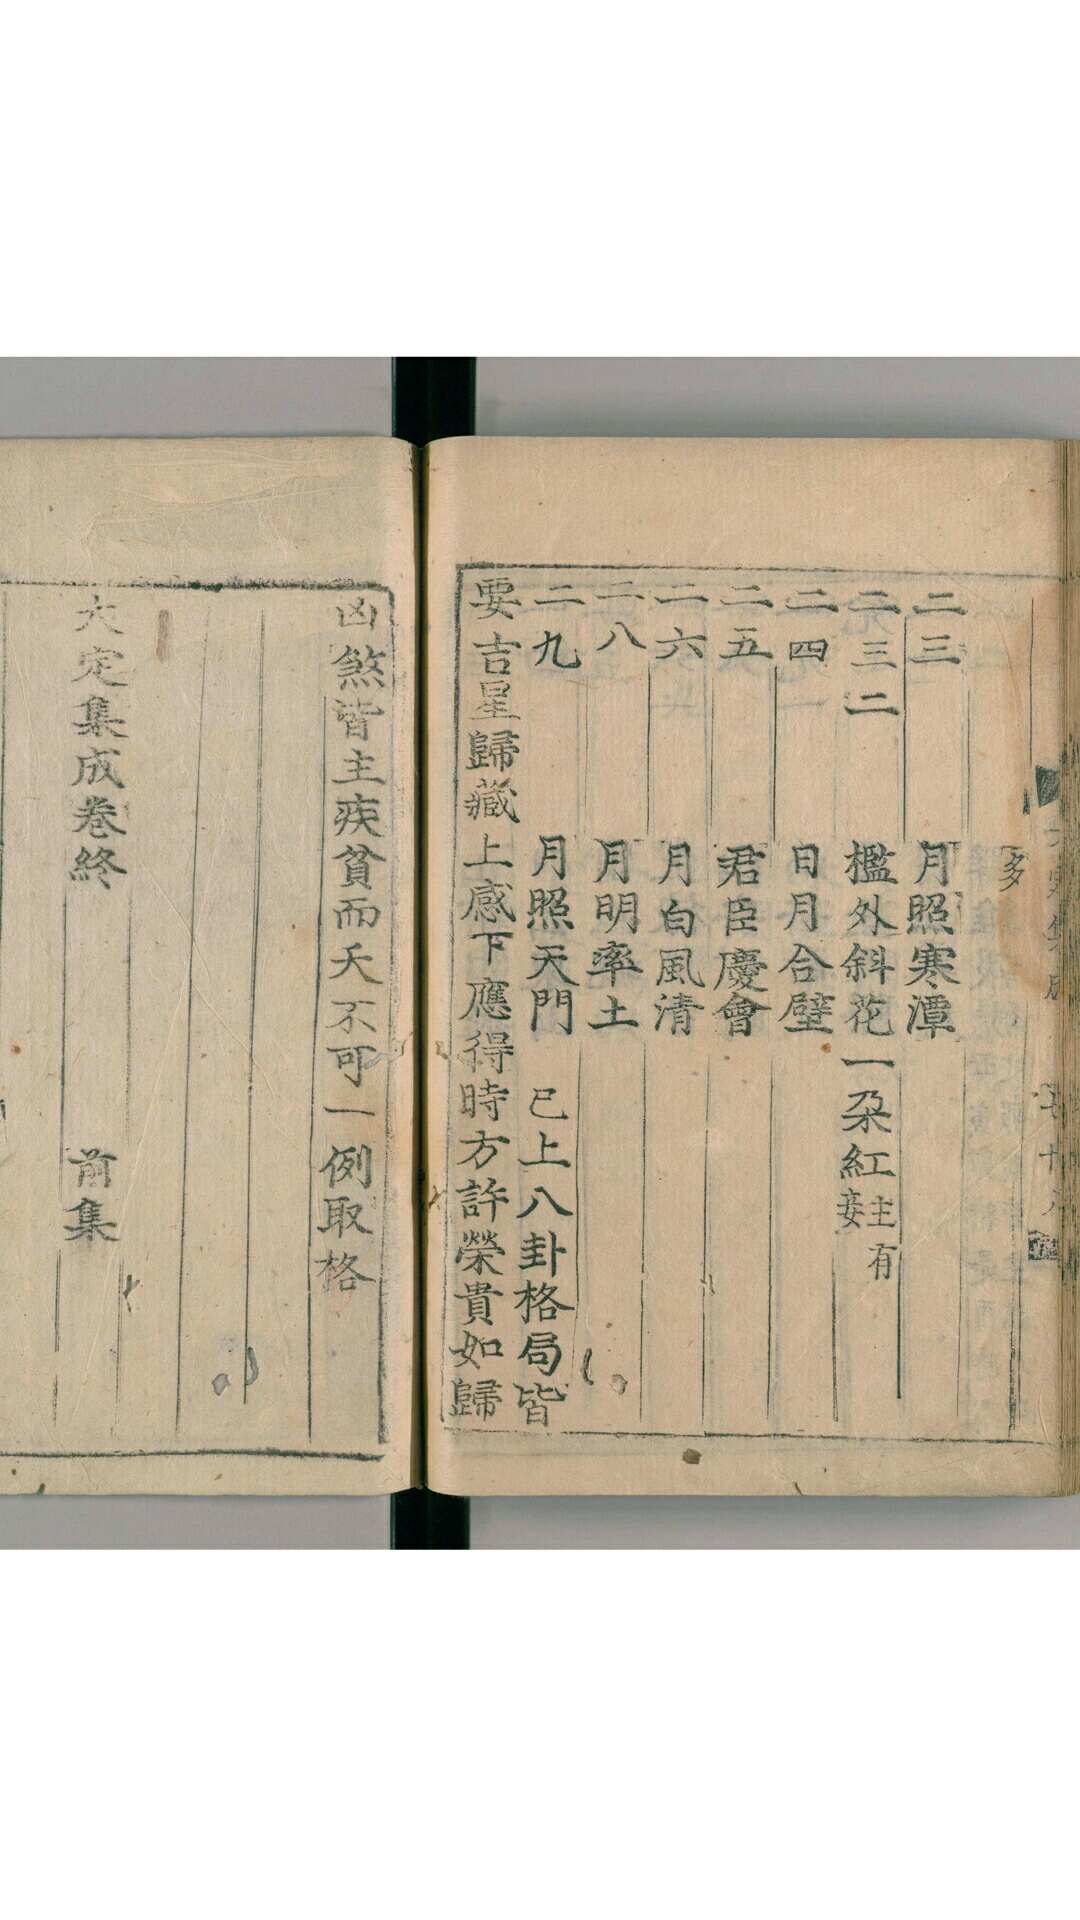 多
二三 月照寒潭
二三二 檻外斜花一朶紅主有妾
二四 日月合璧
二五 君臣慶會
二六 月白風清
二八 月明率土
二九 月照天門 已上八卦格局皆
要吉星歸藏上感下應得時方許榮貴如歸
凶煞皆主疾貧而夭不可一例取格
大定集成卷終 前集